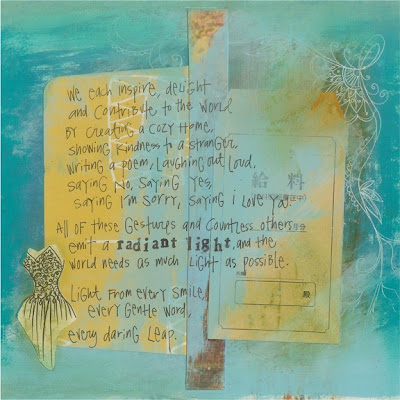 We each inspire, delight
and contribute to the world
By creating a cozy home,
showing kindness to a stranger,
writing a poem, laughing out loud,
saying no, saying yes,
saying I'm sorry, saying i love you.
給 料
All of these gestures and countless others
emit a radiant light, and the
world needs as much light as possible.
殿
Light from every smile,
every gentle word,
every daring leap.